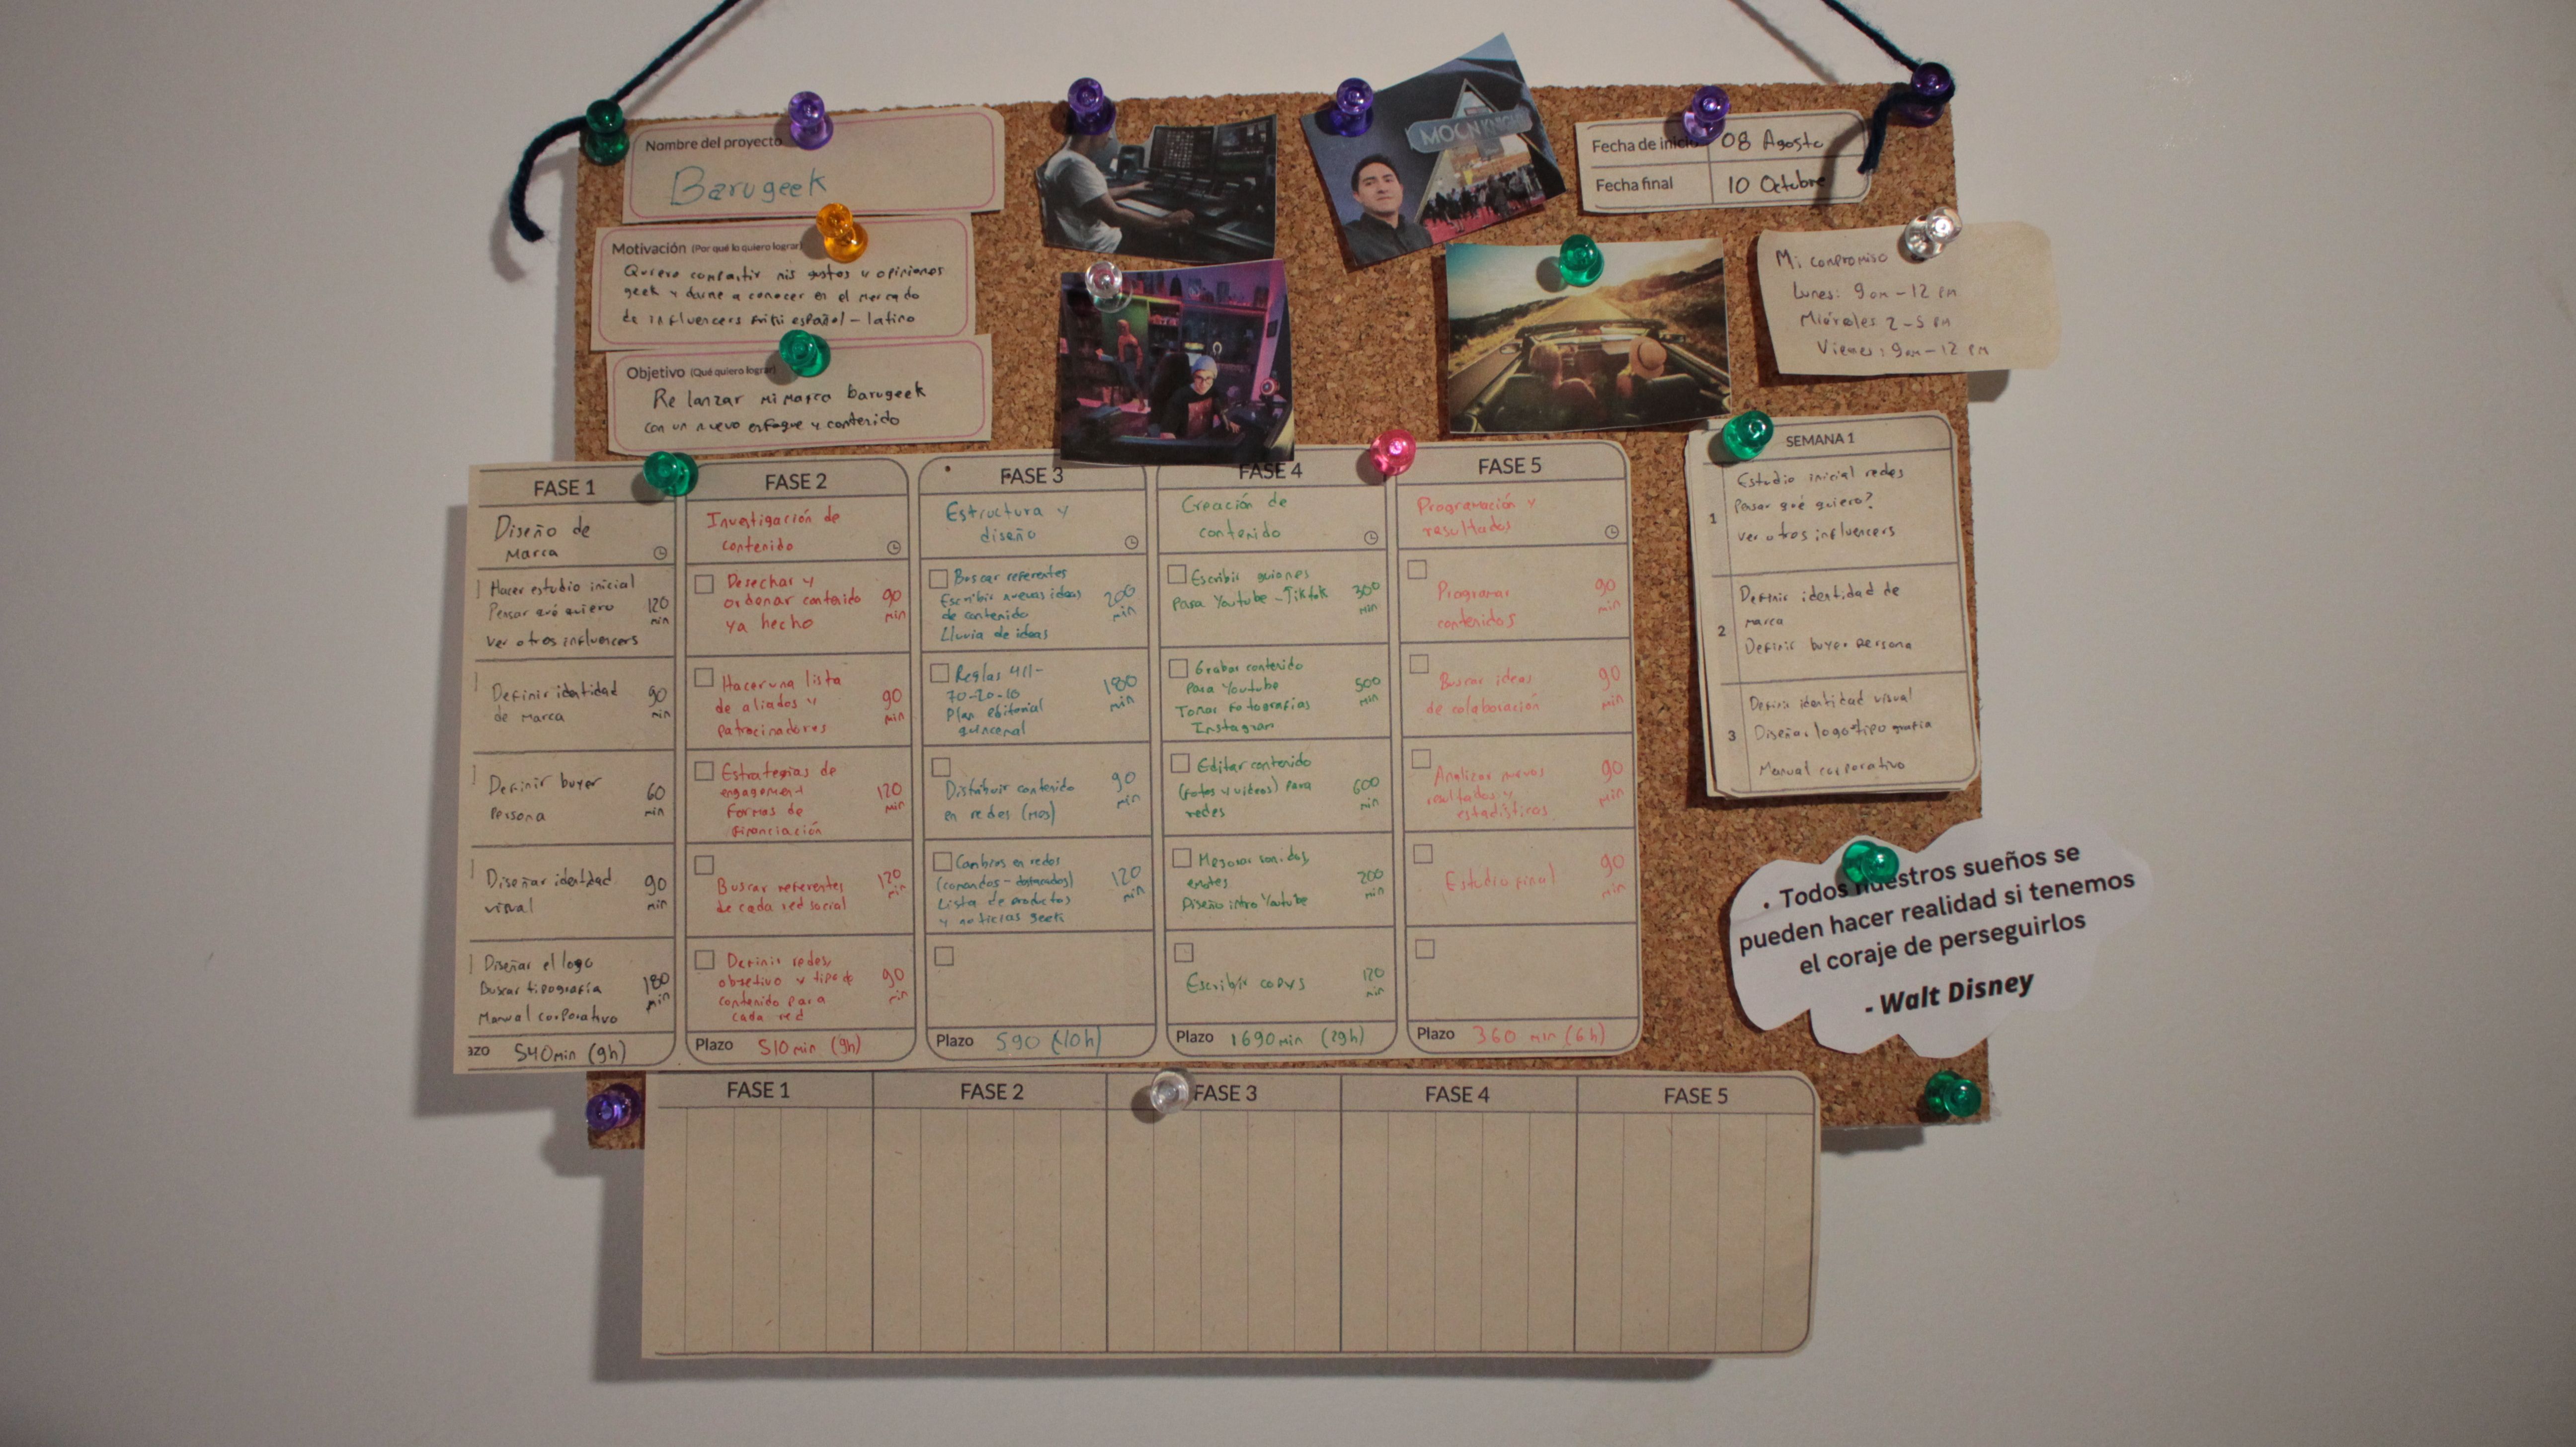 Nombre del proyecto
Barugeek
Motivación (Por qué lo quiero lograr)
Quiero compartir mis gustos y opiniones
geek y darme a conocer en el mercado
de influencers español - latino
Objetivo (Qué quiero lograr)
Re lanzar mi marca barugeek
con un nuevo enfoque y contenido
MOON KNIGHT
Fecha de inicio 08 Agosto
Fecha final 10 Octubre
Mi compromiso
Lunes: 9 am - 12 pm
Miércoles 2 - 5 pm
Viernes: 9am - 12 pm
FASE 1
Diseño de
Marca
Hacer estudio inicial
Pensar qué quiero 120
min
ver otros influencers
Definir identidad 90
de Marca min
Definir buyer 60
Persona min
Diseñar identidad 90
visual min
Diseñar el logo
Buscar tipografía 180
min
Manual corporativo
azo 540min (9h)
FASE 2
Investigación de
contenido
Desechar y
ordenar contenido 90
ya hecho min
Hacer una lista
de aliados y 90
patrocinadores min
Estrategias de
engagement 120
Formas de min
financiación
Buscar referentes 120
de cada red social min
Definir redes,
objetivo y tipo de 90
contenido para min
cada red
Plazo 510 min (9h)
FASE 3
Estructura y
diseño
Buscar referentes
Escribir nuevas ideas 200
de contenido min
Lluvia de ideas
Reglas 411-
70-20-10 180
Plan editorial min
quincenal
Distribuir contenido 90
en redes (mes) min
Cambios en redes
(comandos - destacados) 120
Lista de productos min
y noticias geek
Plazo 590 (10h)
FASE 4
Creación de
contenido
Escribir guiones
para Youtube - Tiktok 300
min
Grabar contenido
para Youtube 500
Tomar fotografías min
Instagram
Editar contenido
(fotos y videos) para 600
redes min
Mejorar sonidos,
emotes 200
Diseño intro Youtube min
Escribir copys 120
min
Plazo 1690min (29h)
FASE 5
Programación y
resultados
Programar 90
contenidos min
Buscar ideas 90
de colaboración min
Analizar nuevos 90
resultados y min
estadísticas
Estudio final 90
min
Plazo 360 min (6h)
SEMANA 1
Estudio inicial redes
Pensar qué quiero?
1
ver otros influencers
Definir identidad de
marca
2
Definir buyer persona
Definir identidad visual
3 Diseñar logo-tipografía
Manual corporativo
. Todos nuestros sueños se
pueden hacer realidad si tenemos
el coraje de perseguirlos
- Walt Disney
FASE 1 FASE 2 FASE 3 FASE 4 FASE 5